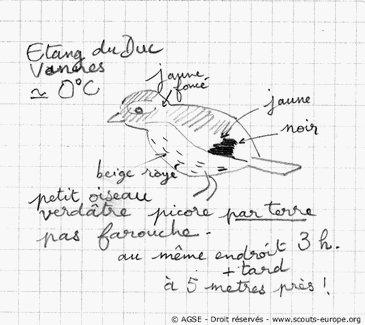 Etang du Duc
Vannes
≃ 0°C
jaune
foncé
jaune
noir
beige rayé
petit oiseau
verdâtre picore par terre
pas farouche.
au même endroit 3 h.
+ tard
à 5 metres près !
© AGSE - Droit réservés - www.scouts-europe.org